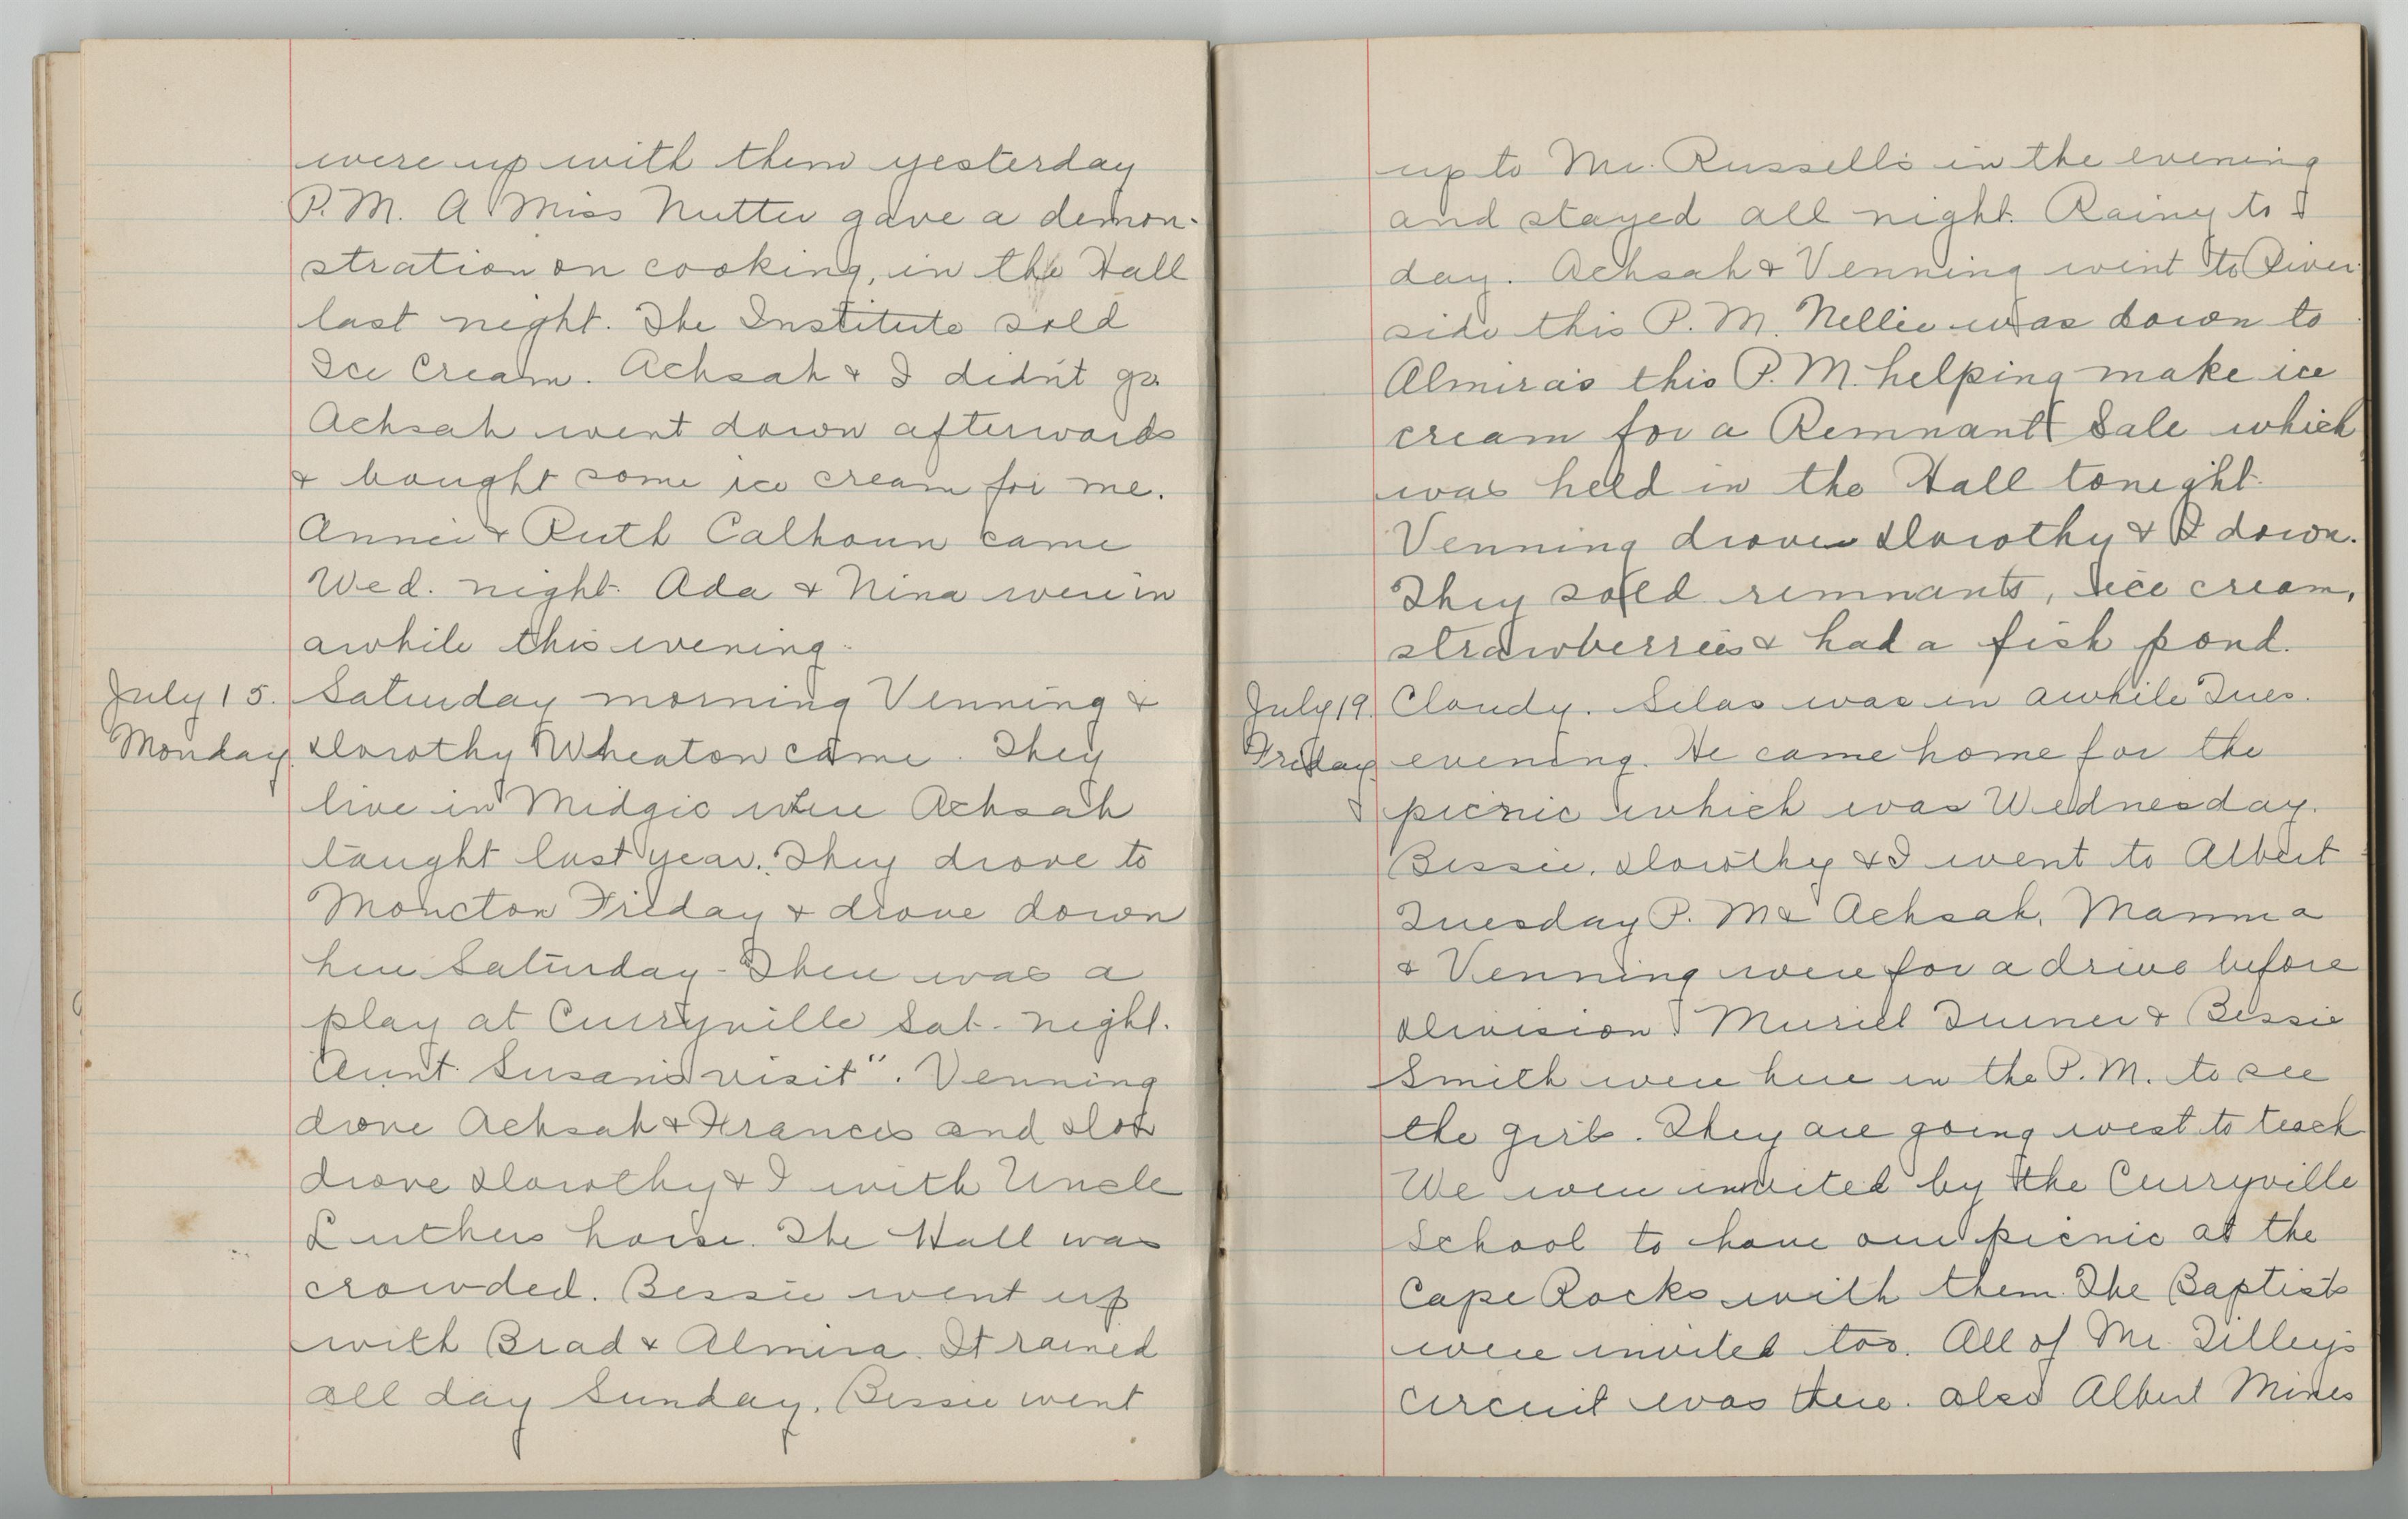 were up with them yesterday
P.M. A Miss Nutter gave a demon-
stration on cooking, in the Hall
last night. The Institute sold
Ice Cream. Achsah & I didn't go
Achsah went down afterwards
& bought some ice cream for me.
Annie & Ruth Calhoun came
Wed. night. Ada & Nina were in
awhile this evening.
July 15. Saturday morning Venning &
Monday. Dorothy Wheaton came. They
live in Midgic where Achsah
taught last year. They drove to
Moncton Friday & drove down
here Saturday - There was a
play at Curryville Sat. night.
"Aunt Susan's visit". Venning
drove Achsah & Frances and
drove Dorothy & I with Uncle
Luthers horse. The Hall was
crowded. Bessie went up
with Brad & Almira. It rained
all day Sunday. Bessie went
up to Mr. Russell's in the evening
and stayed all night. Rainy to
day. Achsah & Venning went to River
side this P.M. Nellie was down to
Almira's this P.M. helping make ice
cream for a Remnant Sale which
was held in the Hall tonight.
Venning drove Dorothy & I down.
They sold remnants, ice cream,
strawberries & had a fish pond.
July 19. Cloudy. Silas was in awhile Tues.
Friday evening. He came home for the
picnic which was Wednesday.
Bessie, Dorothy & I went to Albert
Tuesday P.M & Achsah, Mamma
& Venning were for a drive before
Division. Muriel Turner & Bessie
Smith were here in the P.M. to see
the girls. They are going west to teach
We were invited by the Curryville
School to have our picnic at the
Cape Rocks with them. The Baptists
were invited too. All of Mr. Tilley's
circuit was there. also Albert Mines